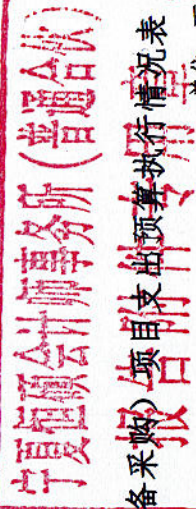 宁夏恒硕会计师事务所(普通合伙)
报告附件专用章
备采购)项目支出预算执行情况表